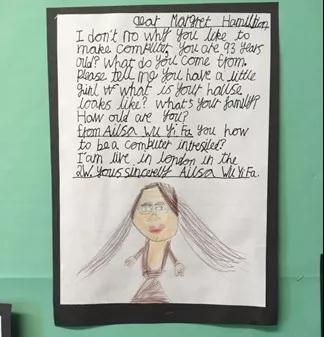 dear Margret Hamilltion
I don't no why you like to
make computer, you are 93 years
old? What do you come from.
Please tell me you have a little
girl or what is your hause
looks like? what's your family?
How old are you?
from Ailsa Wu Yi Fa you how
to be a computer intresiteed?
I am live in london in the
2W. Yours sincerely Ailsa Wu Yi Fa.